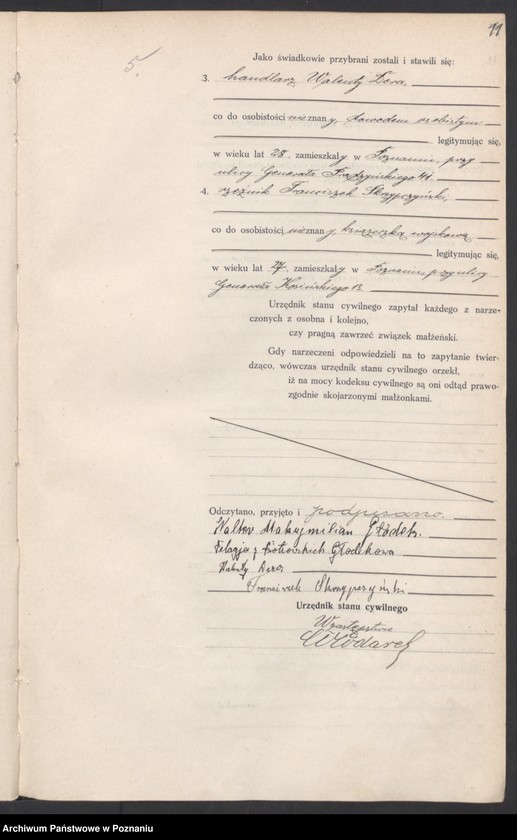 11
5.
Jako świadkowie przybrani zostali i stawili się:
3. handlarz Walenty Dera,
co do osobistości nieznany, dowodem osobistym
legitymując się,
w wieku lat 28, zamieszkały w Poznaniu, przy
ulicy Generała Prądzyńskiego 41.
4. rzeźnik Franciszek Skrzypczyński,
co do osobistości nieznany, książeczką wojskową
legitymując się,
w wieku lat 27, zamieszkały w Poznaniu, przy ulicy
Generała Kosińskiego 13.
Urzędnik stanu cywilnego zapytał każdego z narze-
czonych z osobna i kolejno,
czy pragną zawrzeć związek małżeński.
Gdy narzeczeni odpowiedzieli na to zapytanie twier-
dząco, wówczas urzędnik stanu cywilnego orzekł,
iż na mocy kodeksu cywilnego są oni odtąd prawo-
zgodnie skojarzonymi małżonkami.
Odczytano, przyjęto i podpisano.
Walter Maksymilian Głodek.
Pelagja z Piotrowskich Głodekowa
Walenty Dera
Franciszek Skrzypczyński
Urzędnik stanu cywilnego
W zastępstwie
Włodarek
Archiwum Państwowe w Poznaniu